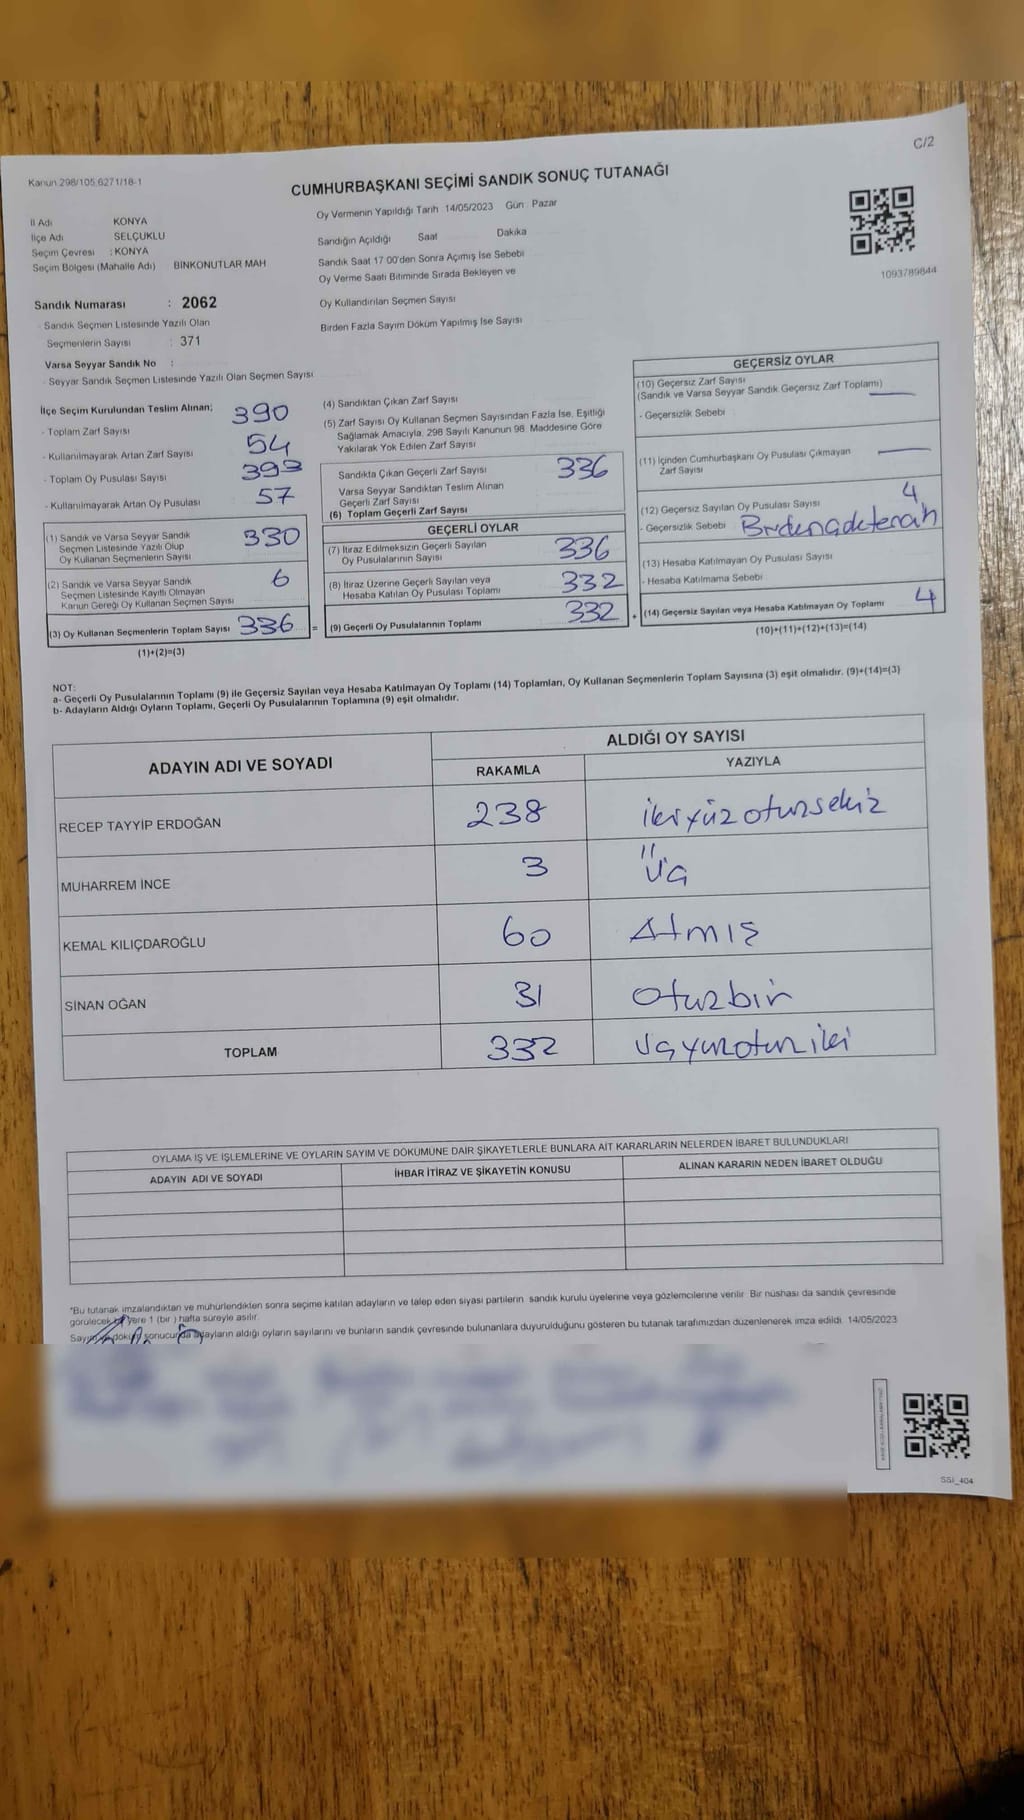 C/2
Kanun 298/105,6271/18-1
CUMHURBAŞKANI SEÇİMİ SANDIK SONUÇ TUTANAĞI
İl Adı KONYA
İlçe Adı SELÇUKLU
Seçim Çevresi : KONYA
Seçim Bölgesi (Mahalle Adı) BİNKONUTLAR MAH
Sandık Numarası : 2062
- Sandık Seçmen Listesinde Yazılı Olan
Seçmenlerin Sayısı : 371
Varsa Seyyar Sandık No :
- Seyyar Sandık Seçmen Listesinde Yazılı Olan Seçmen Sayısı
Oy Vermenin Yapıldığı Tarih 14/05/2023 Gün : Pazar
Sandığın Açıldığı Saat Dakika
Sandık Saat 17:00'den Sonra Açımış İse Sebebi
Oy Verme Saati Bitiminde Sırada Bekleyen ve
Oy Kullandırılan Seçmen Sayısı
Birden Fazla Sayım Döküm Yapılmış İse Sayısı
1093789844
İlçe Seçim Kurulundan Teslim Alınan;
- Toplam Zarf Sayısı 390
- Kullanılmayarak Artan Zarf Sayısı 54
- Toplam Oy Pusulası Sayısı 393
- Kullanılmayarak Artan Oy Pusulası 57
(1) Sandık ve Varsa Seyyar Sandık
Seçmen Listesinde Yazılı Olup
Oy Kullanan Seçmenlerin Sayısı 330
(2) Sandık ve Varsa Seyyar Sandık
Seçmen Listesinde Kayıtlı Olmayan
Kanun Gereği Oy Kullanan Seçmen Sayısı 6
(3) Oy Kullanan Seçmenlerin Toplam Sayısı 336 =
(1)+(2)=(3)
(4) Sandıktan Çıkan Zarf Sayısı
(5) Zarf Sayısı Oy Kullanan Seçmen Sayısından Fazla İse, Eşitliği
Sağlamak Amacıyla, 298 Sayılı Kanunun 98. Maddesine Göre
Yakılarak Yok Edilen Zarf Sayısı
Sandıkta Çıkan Geçerli Zarf Sayısı 336
Varsa Seyyar Sandıktan Teslim Alınan
Geçerli Zarf Sayısı
(6) Toplam Geçerli Zarf Sayısı
GEÇERLİ OYLAR
(7) İtiraz Edilmeksizin Geçerli Sayılan
Oy Pusulalarının Sayısı 336
(8) İtiraz Üzerine Geçerli Sayılan veya
Hesaba Katılan Oy Pusulası Toplamı 332
(9) Geçerli Oy Pusulalarının Toplamı 332 +
GEÇERSİZ OYLAR
(10) Geçersiz Zarf Sayısı
(Sandık ve Varsa Seyyar Sandık Geçersiz Zarf Toplamı) —
- Geçersizlik Sebebi
(11) İçinden Cumhurbaşkanı Oy Pusulası Çıkmayan
Zarf Sayısı —
(12) Geçersiz Sayılan Oy Pusulası Sayısı 4
- Geçersizlik Sebebi
(13) Hesaba Katılmayan Oy Pusulası Sayısı
- Hesaba Katılmama Sebebi
(14) Geçersiz Sayılan veya Hesaba Katılmayan Oy Toplamı 4
(10)+(11)+(12)+(13)=(14)
NOT:
a- Geçerli Oy Pusulalarının Toplamı (9) ile Geçersiz Sayılan veya Hesaba Katılmayan Oy Toplamı (14) Toplamları, Oy Kullanan Seçmenlerin Toplam Sayısına (3) eşit olmalıdır. (9)+(14)=(3)
b- Adayların Aldığı Oyların Toplamı, Geçerli Oy Pusulalarının Toplamına (9) eşit olmalıdır.
ADAYIN ADI VE SOYADI ALDIĞI OY SAYISI
RAKAMLA YAZIYLA
RECEP TAYYİP ERDOĞAN 238 ikiyüzotuzsekiz
MUHARREM İNCE 3 üç
KEMAL KILIÇDAROĞLU 60 Atmış
SİNAN OĞAN 31 Otuzbir
TOPLAM 332 üçyüzotuziki
OYLAMA İŞ VE İŞLEMLERİNE VE OYLARIN SAYIM VE DÖKÜMÜNE DAİR ŞİKAYETLERLE BUNLARA AİT KARARLARIN NELERDEN İBARET BULUNDUKLARI
ADAYIN ADI VE SOYADI İHBAR İTİRAZ VE ŞİKAYETİN KONUSU ALINAN KARARIN NEDEN İBARET OLDUĞU
*Bu tutanak imzalandıktan ve mühürlendikten sonra seçime katılan adayların ve talep eden siyasi partilerin sandık kurulu üyelerine veya gözlemcilerine verilir. Bir nüshası da sandık çevresinde
görülecek bir yere 1 (bir) hafta süreyle asılır.
Sayım ve döküm sonucunda adayların aldığı oyların sayılarını ve bunların sandık çevresinde bulunanlara duyurulduğunu gösteren bu tutanak tarafımızdan düzenlenerek imza edildi. 14/05/2023
SSİ_404